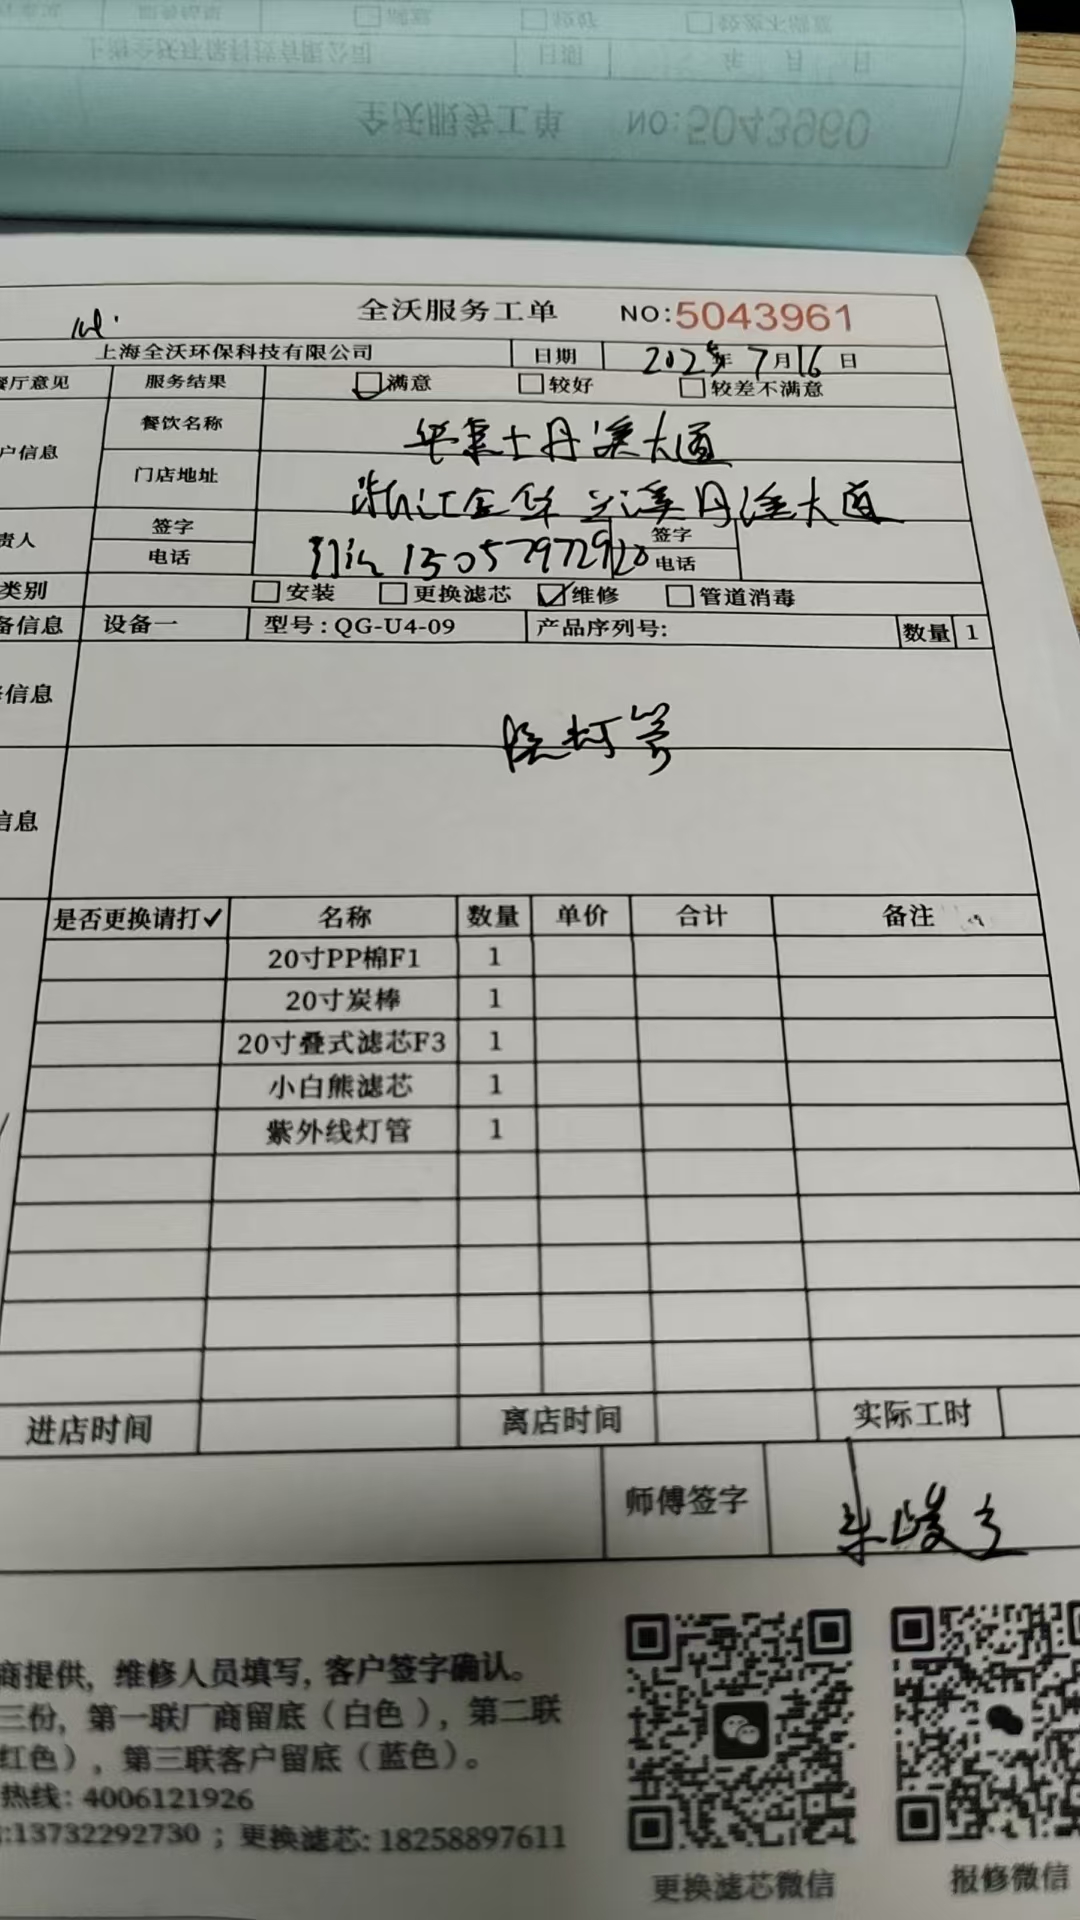 全沃服务工单 NO:5043960
全沃服务工单 NO:5043961
上海全沃环保科技有限公司 日期 2025年7月16日
餐厅意见 服务结果 满意 较好 较差不满意
户信息 餐饮名称 华莱士丹溪大道
门店地址 浙江金华兰溪丹溪大道
责人 签字 签字
电话 15057972920 电话
类别 安装 更换滤芯 维修 管道消毒
备信息 设备一 型号:QG-U4-09 产品序列号: 数量 1
信息
灯管
信息
是否更换请打✓ 名称 数量 单价 合计 备注
20寸PP棉F1 1
20寸炭棒 1
20寸叠式滤芯F3 1
小白熊滤芯 1
紫外线灯管 1
进店时间 离店时间 实际工时
师傅签字
商提供, 维修人员填写, 客户签字确认。
三份, 第一联厂商留底(白色), 第二联
红色), 第三联客户留底(蓝色)。
热线: 4006121926
:13732292730 ; 更换滤芯: 18258897611
更换滤芯微信 报修微信